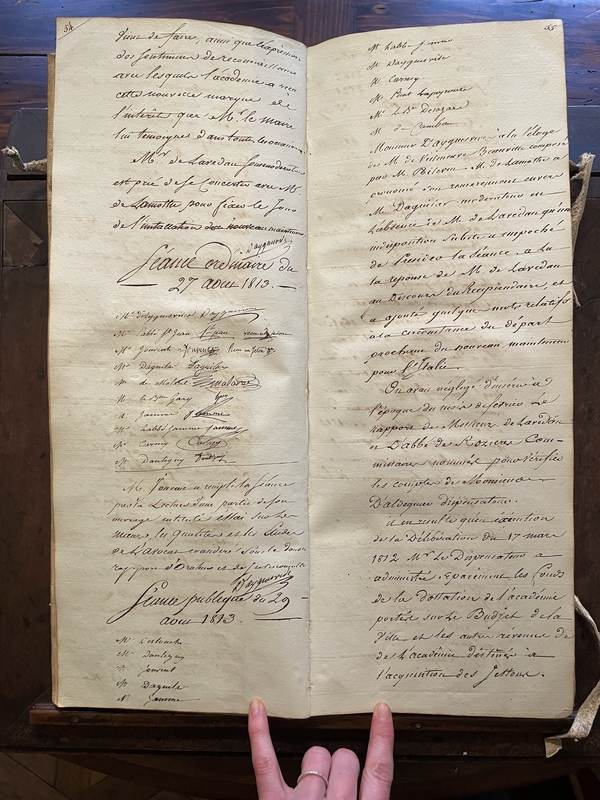 54
d'une de faire, ainsi que l'expression
des sentimens de reconnaissance
avec lesquels l'académie a reçu
cette nouvelle marque de
l'intérêt que Mr. le maire
lui temoigne dans toutes les occasions
Mr. de Lavedan
est prié de se Concerter avec M.
de Lamotte pour fixer le jour
de l'installation du nouveau mainteneur
D'ayguesvives
Séance ordinaire du
27 aout 1813.
Mr D'ayguesvives D'ayguesvives
Mr l'abbé St Jean
Mr Jouvent
Mr Daguilar Daguilar
Mr de Malaret Malaret
Mr le Bon Gary Gary
Mr Jamme Jamme
Mr L'abbé Jamme Jamme
Mr Carney Carney
Mr Dantigny Dantigny
M. Jouvent a rempli la séance
par la Lecture d'une partie de son
ouvrage intitulé essai sur les
mœurs, les qualités et les études
de L'avocat considéré sous le double
rapport d'Orateur et de Jurisconsulte
D'ayguesvives
Séance publique du 29
aout 1813.
Mr
Mr Dantigny
Mr Jouvent
Mr Daguilar
Mr Jamme
55
Mr Labbé Jamme
Mr Dayguesvives
Mr Carney
Mr Picot Lapeyrouse
Mr Le Bon Desazars
Mr de Cambon
Monsieur D'ayguesvives a lu l'éloge
de M. de composé
par M. M. de Lamotte a
prononcé son remerciement envers
Mr Daguilar moderateur en
l'absence de M. de Lavedan qu'une
indisposition subite a empeché
de présider la séance. a lu
la réponse de M. de Lavedan
au Discours du Récipiendaire, et
a ajouté quelques mots relatifs
à la circonstance du départ
prochain du nouveau mainteneur
pour l'Italie.
On avait négligé d'insérer à
l'époque du mois de fevrier Le
rapport de Messieurs de Lavedan
et L'abbé de Rozieres Com-
missaires nommés pour vérifier
les comptes de Monsieur
D'aldeguier dispensateur.
il en resulte qu'en exécution
de la Délibération du 17 mars
1812 Mr Le Dispensateur a
administré séparément les fonds
de la dottation de l'académie
portés sur le Budget de la
Ville et les autres revenus de
de L'académie destinés à
l'acquisition des Jettons.